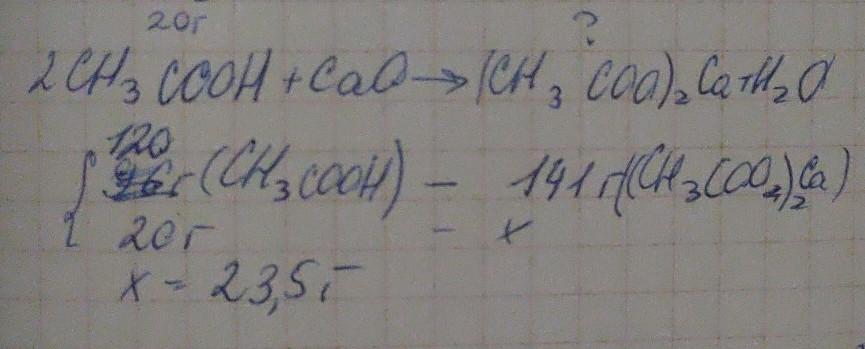 20г ?
2CH₃COOH + CaO → (CH₃COO)₂Ca + H₂O
120
г (CH₃COOH) — 141 г ((CH₃COO₂)₂Ca)
20г - x
x = 23,5г